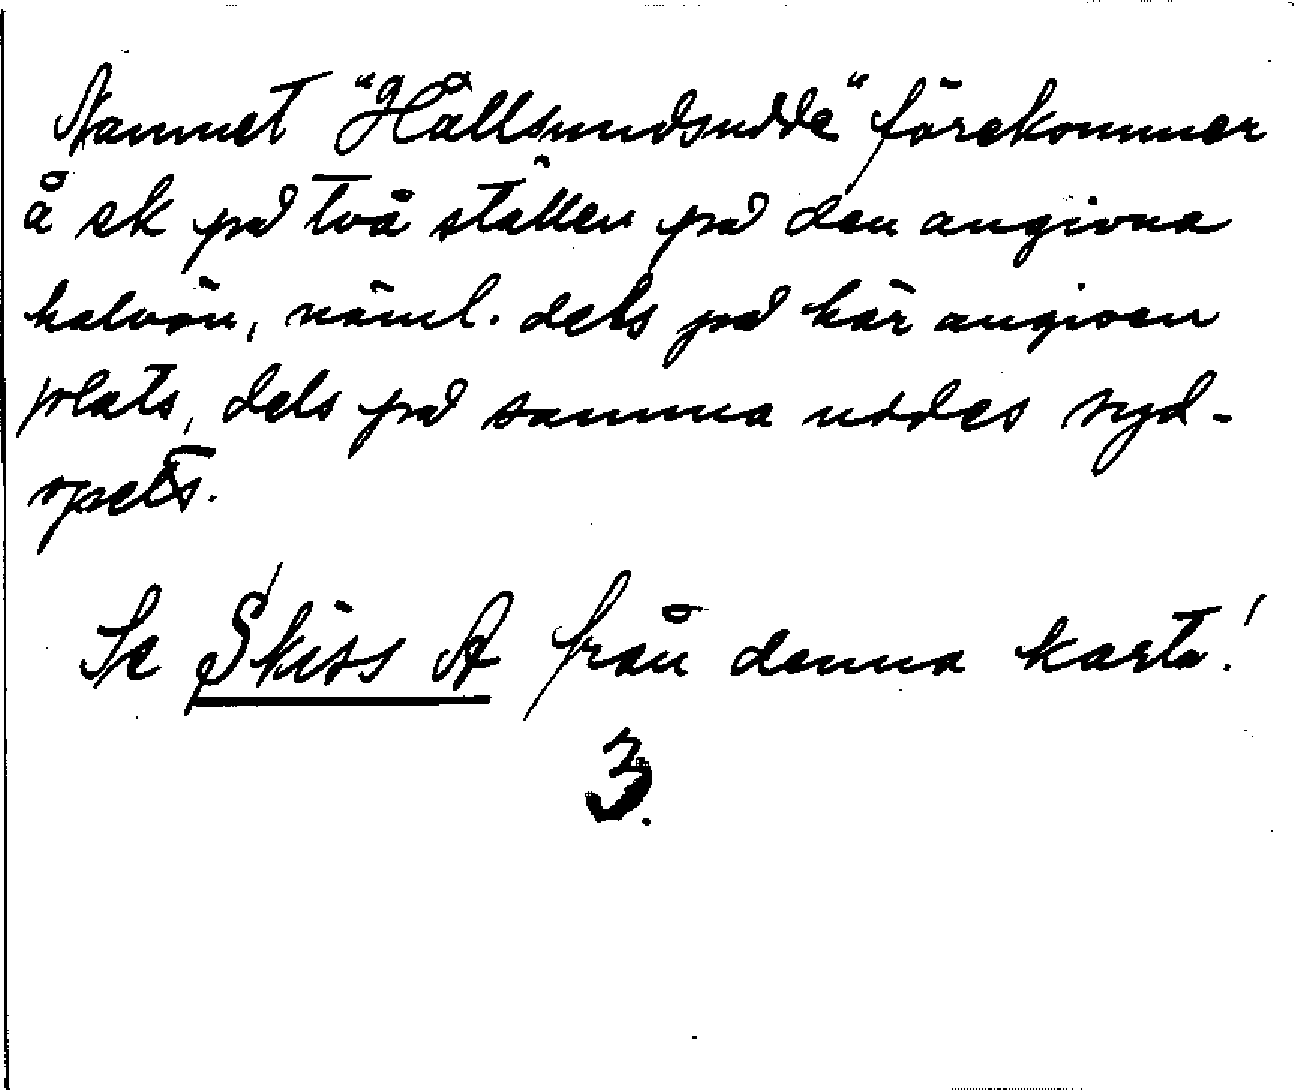 Namnet "Hållsundsudde" förekommer
å ek på två ställen på den angivna
halvön, näml. dels på här angiven
plats, dels på samma uddes syd-
spets.
Se Skiss A från denna karta!
3.